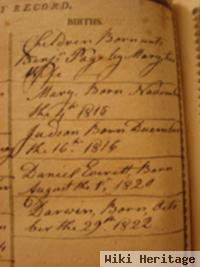 Y RECORD.
BIRTHS.
Children Born unto
Benjn Page by Mary his
Wife
Mary. Born Novem
the 4th 1815
Judson Born December
the 16th 1816
Daniel Everett, Born
August the 1, 1820
Darwin, Born, Octo
ber the 29th 1822
Wiki Heritage